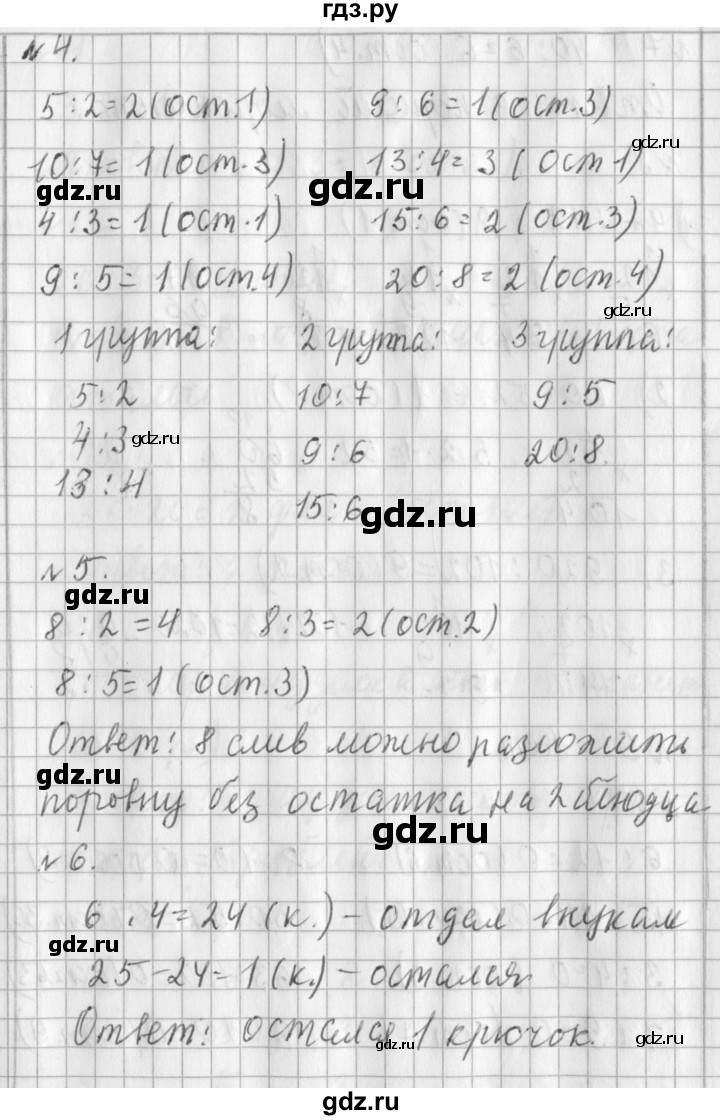 гдз.ру
№4.
5:2=2(ост.1) 9:6=1(ост.3)
gdz.ru
10:7=1(ост.3) 13:4=3(ост 1)
gdz.ru gdz.ru
4:3=1(ост.1) 15:6=2(ост.3)
9:5=1(ост.4) 20:8=2(ост.4)
gdz.ru
1 группа: 2 группа: 3 группа:
5:2 10:7 9:5
4:3 9:6 20:8.
gdz.ru
13:4
15:6
gdz.ru
№5.
gdz.ru
8:2=4 8:3=2(ост.2)
8:5=1(ост.3)
Ответ: 8 слив можно разложить
gdz.ru
поровну без остатка на 2 блюдца
gdz.ru
№6.
6·4=24(к.)-отдал внукам
gdz.ru
25-24=1(к.)-остался
Ответ: остался 1 крючок.
gdz.ru
gdz.ru
gdz.ru